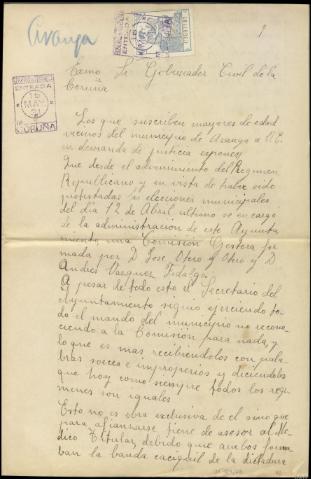 Aranga
1
ENTRADA
16
MAY
31
CORUÑA
Excmo Sr Gobernador Civil de la
Coruña
Los que suscriben mayores de edad
vecinos del municipio de Aranga a V.E
en demanda de justicia exponen:
Que desde el advenimiento del Regimen
Republicano y en vista de haber sido
protestadas las elecciones municipales
del dia 12 de Abril ultimo se en cargo
de la administracion de este Ayunta
miento una Comision Gestora for
mada por D Jose Otero y Otro y D
Andres Vazquez Fidalgo.
A pesar de todo esto el Secretario del
Ayuntamiento siguio ejerciendo to
do el mando del municipio no recono
ciendo a la Comision para nada, y
lo que es mas recibiendolos con pala
bras soeces e improperios y diciendoles
que hoy como siempre todos los regi
menes son iguales.
Esto no es obra exclusiva de el sino que
para afianzarse tiene de asesor al Me
dico Titular, debido que ambos forma
ban la banda caciquil de la dictadura